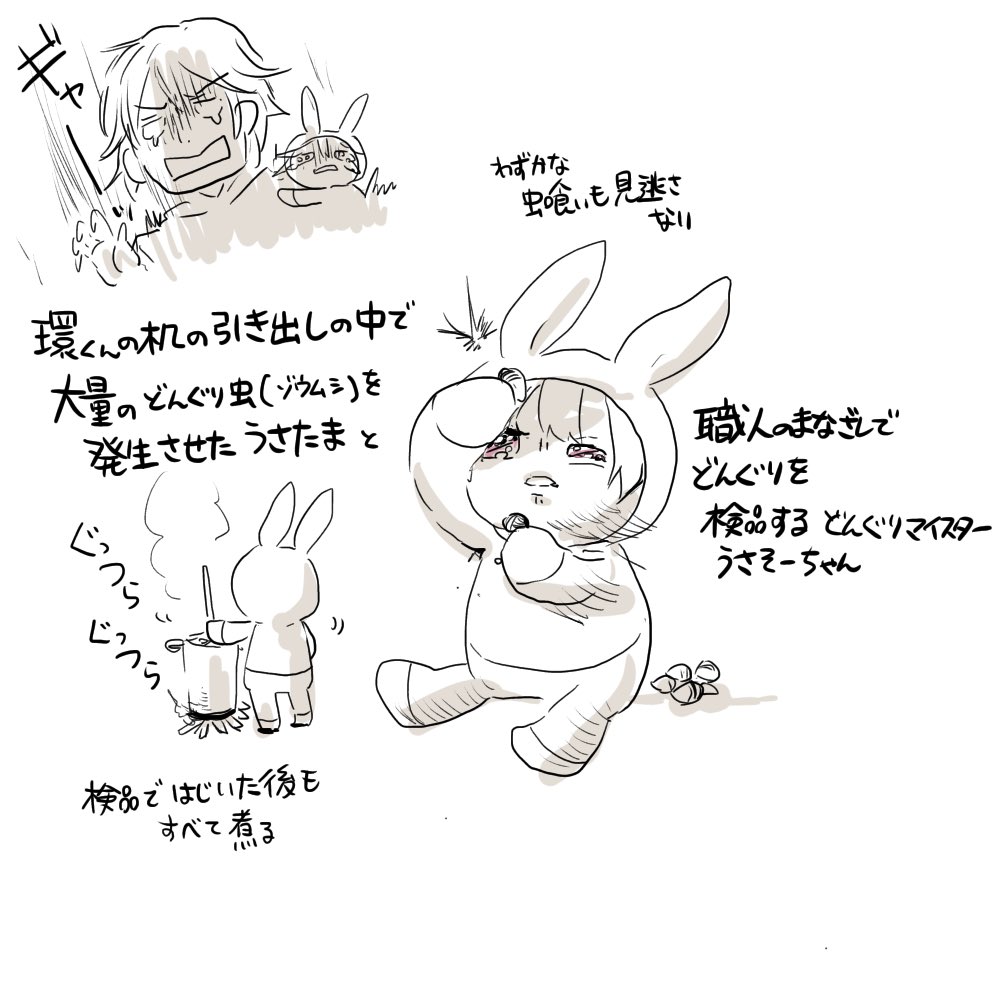 ギャー
環くんの机の引き出しの中で
大量のどんぐり虫(ゾウムシ)を
発生させたうさたまと
わずかな
虫喰いも見逃さ
ない
職人のまなざしで
どんぐりを
検品するどんぐりマイスター
うさそーちゃん
ぐっつら
ぐっつら
検品ではじいた後も
すべて煮る